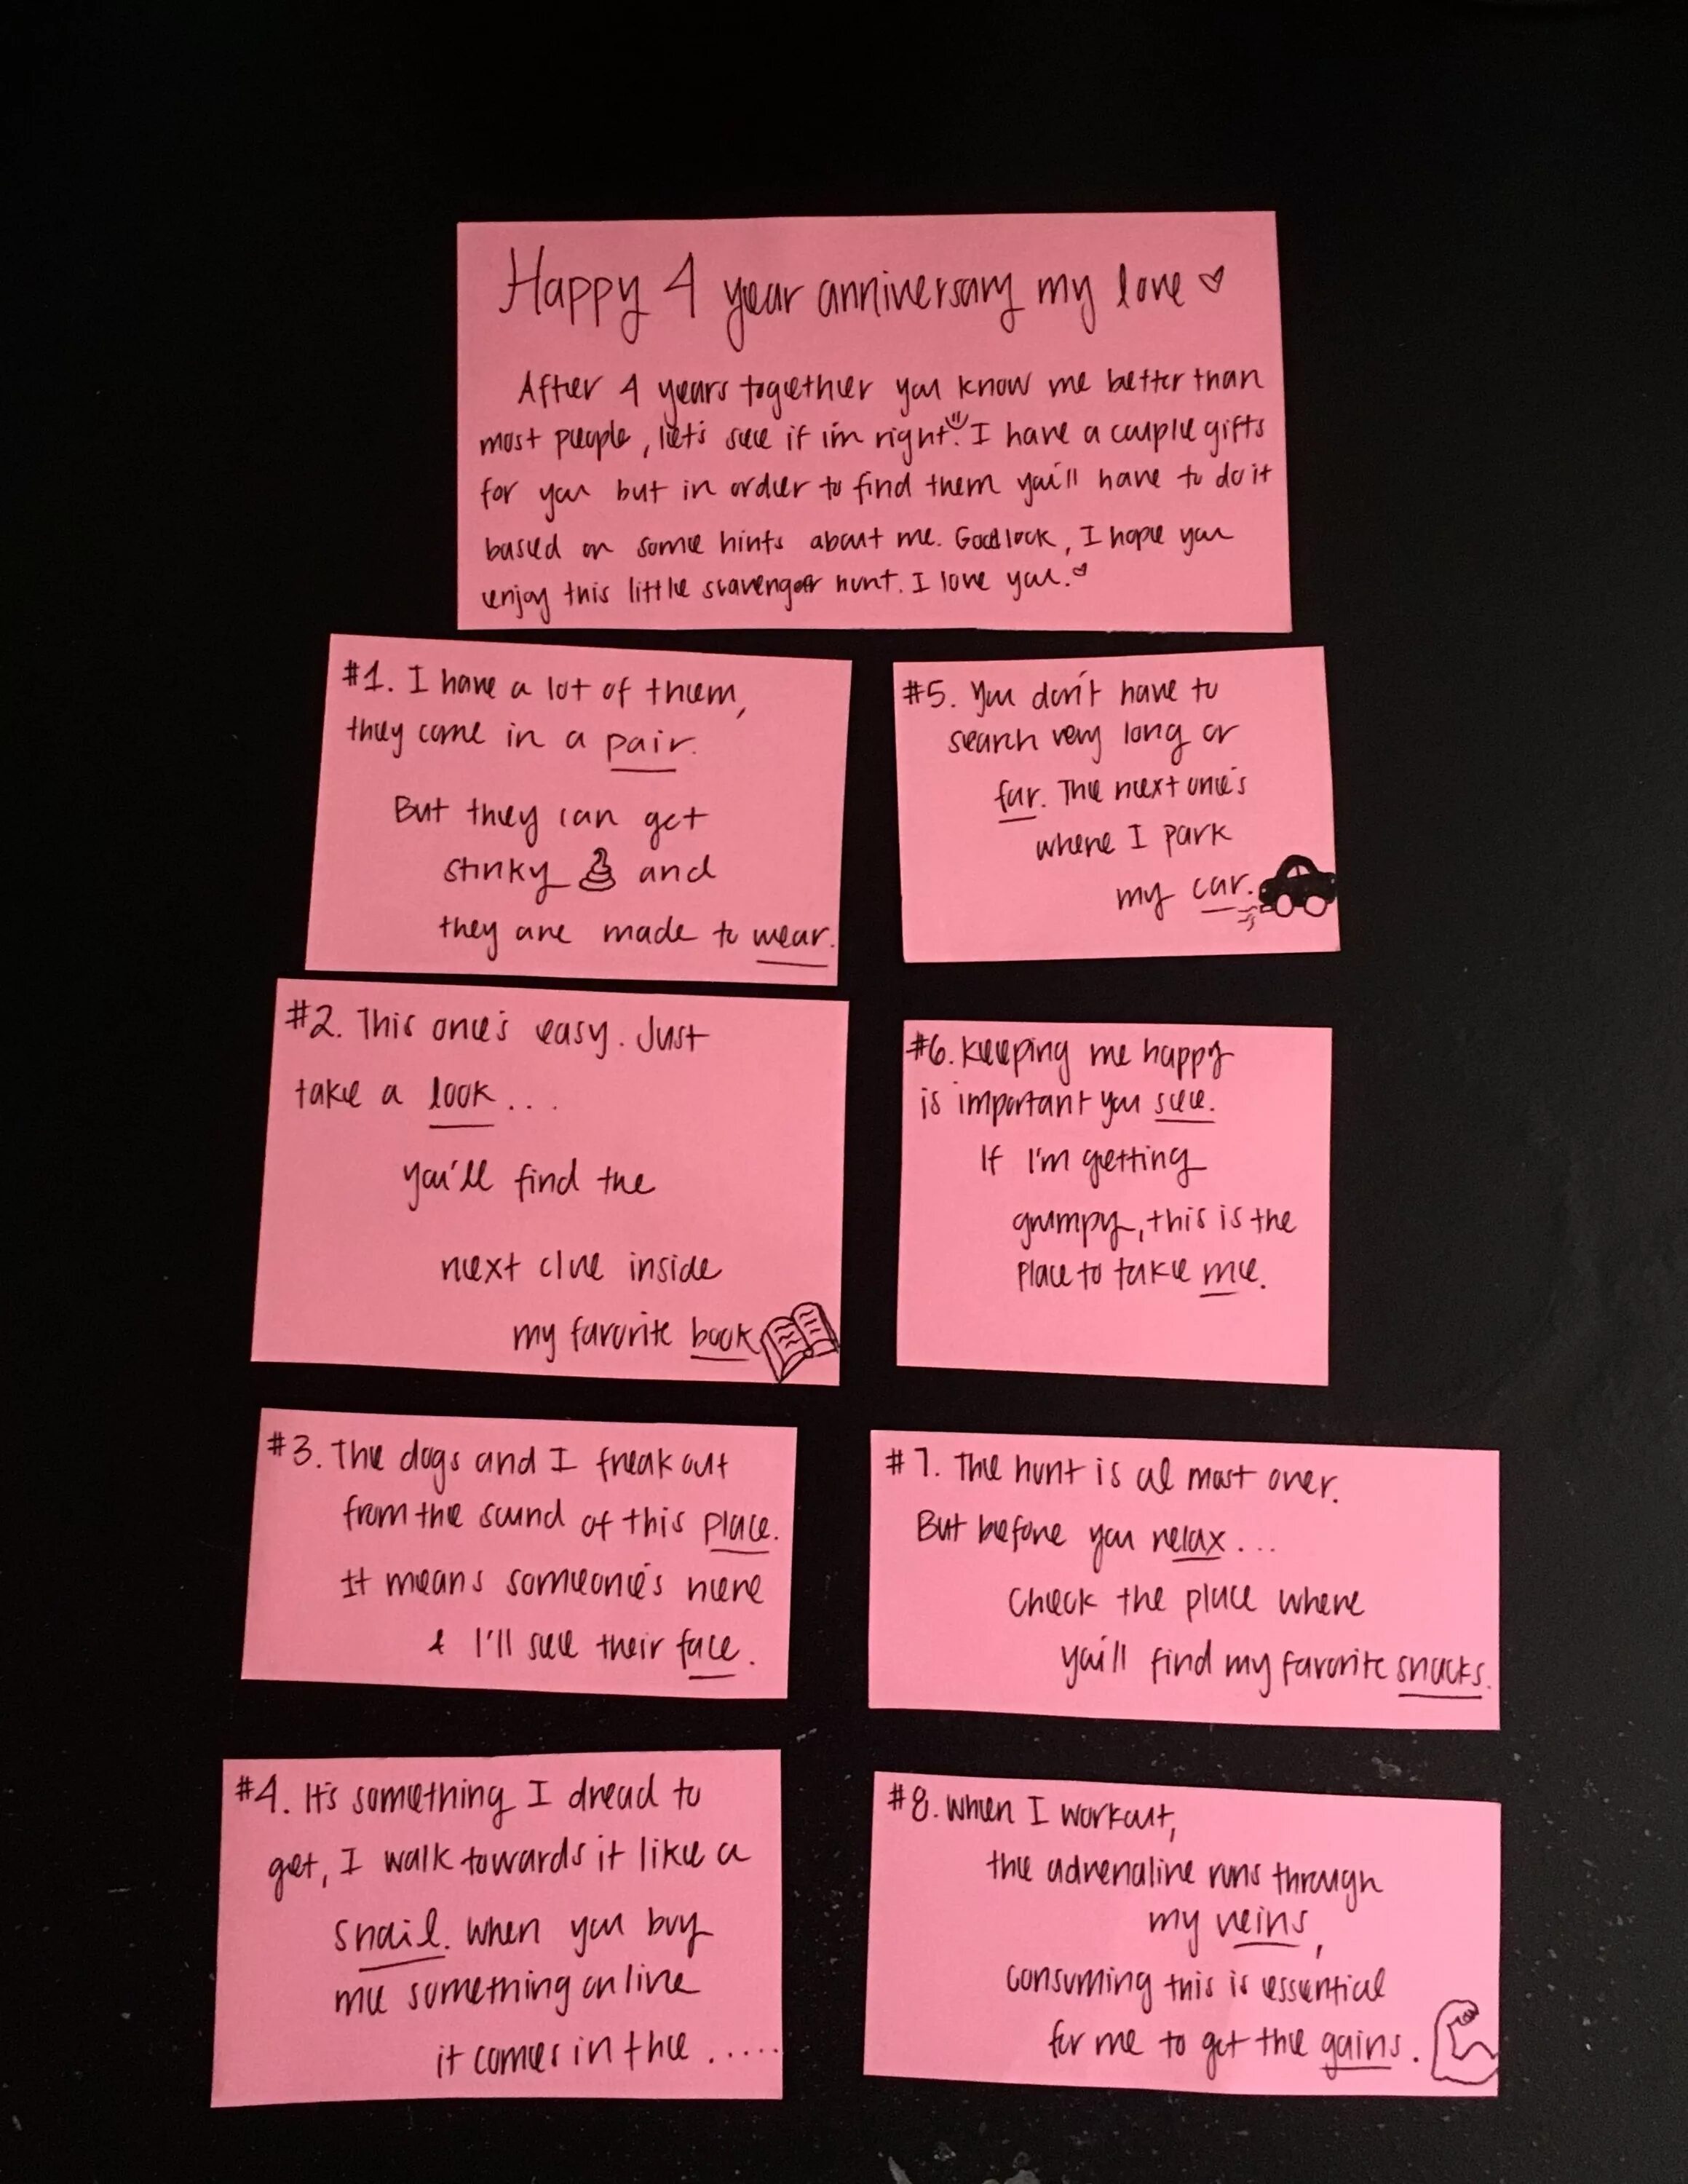 Happy 4 year anniversary my love ♡
After 4 years together you know me better than
most people, let's see if i'm right. I have a couple gifts
for you but in order to find them you'll have to do it
based on some hints about me. Good luck, I hope you
enjoy this little scavenger hunt. I love you. ♡
#1. I have a lot of them,
they come in a pair.
But they can get
stinky 💩 and
they are made to wear.
#2. This one's easy. Just
take a look...
you'll find the
next clue inside
my favorite book
#3. The dogs and I freak out
from the sound of this place.
It means someone's here
& I'll see their face.
#4. It's something I dread to
get, I walk towards it like a
snail. When you buy
me something online
it comes in the .....
#5. You don't have to
search very long or
far. The next one's
where I park
my car.
#6. Keeping me happy
is important you see.
If I'm getting
grumpy, this is the
place to take me.
#7. The hunt is almost over.
But before you relax...
Check the place where
you'll find my favorite snacks.
#8. When I workout,
the adrenaline runs through
my veins,
consuming this is essential
for me to get the gains.